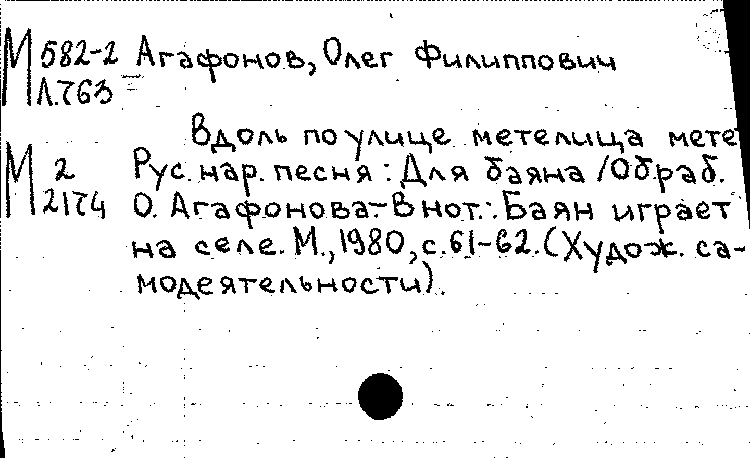 М 582-2 Агафонов, Олег Филиппович
Л.763
Вдоль по улице метелица мете
М 2 Рус. нар. песня: Для баяна / Обраб.
2174 О. Агафонова.- В нот.: Баян играет
на селе. М., 1980, с. 61-62. (Худож. са-
модеятельности).